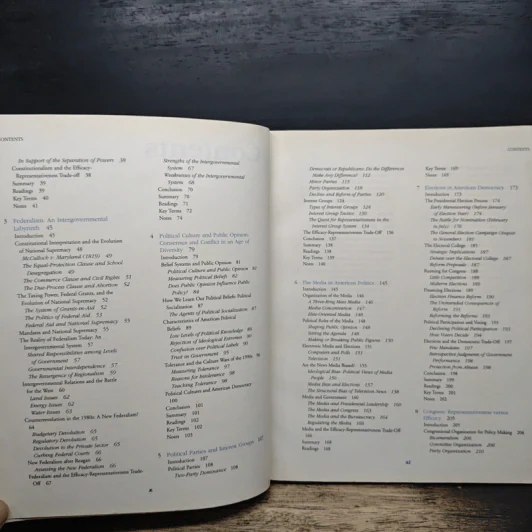 CONTENTS
In Support of the Separation of Powers 38
Constitutionalism and the Efficacy-
Representativeness Trade-off 38
Summary 39
Readings 39
Key Terms 40
Notes 41
3 Federalism: An Intergovernmental
Labyrinth 45
Introduction 45
Constitutional Interpretation and the Evolution
of National Supremacy 48
McCulloch v. Maryland (1819) 49
The Equal-Protection Clause and School
Desegregation 49
The Commerce Clause and Civil Rights 51
The Due-Process Clause and Abortion 52
The Taxing Power, Federal Grants, and the
Evolution of National Supremacy 52
The System of Grants-in-Aid 52
The Politics of Federal Aid 53
Federal Aid and National Supremacy 55
Mandates and National Supremacy 55
The Reality of Federalism Today: An
Intergovernmental System 57
Shared Responsibilities among Levels
of Government 57
Governmental Interdependence 57
The Resurgence of Regionalism 59
Intergovernmental Relations and the Battle
for the West 60
Land Issues 62
Energy Issues 62
Water Issues 63
Counterrevolution in the 1980s: A New Federalism?
64
Budgetary Devolution 65
Regulatory Devolution 65
Devolution to the Private Sector 65
Curbing Federal Courts 66
New Federalism after Reagan 66
Assessing the New Federalism 66
Federalism and the Efficacy-Representativeness Trade-
Off 67
Strengths of the Intergovernmental
System 67
Weaknesses of the Intergovernmental
System 68
Conclusion 70
Summary 70
Readings 71
Key Terms 72
Notes 74
4 Political Culture and Public Opinion:
Consensus and Conflict in an Age of
Diversity 79
Introduction 79
Belief Systems and Public Opinion 81
Political Culture and Public Opinion 82
Measuring Political Belief 82
Does Public Opinion Influence Public
Policy? 84
How We Learn Our Political Beliefs: Political
Socialization 87
The Agents of Political Socialization 87
Characteristics of American Political
Beliefs 89
Low Levels of Political Knowledge 89
Rejection of Ideological Extremes
Confusion over Political Labels
Trust in Government 95
Tolerance and the Culture Wars of the 1990s
Measuring Tolerance 97
Reasons for Intolerance 98
Teaching Tolerance 98
Political Cultures and American Democracy
100
Conclusion 101
Summary 101
Readings 102
Key Terms 102
Notes 103
5 Political Parties and Interest Groups 107
Introduction 107
Political Parties 108
Two-Party Dominance 108
CONTENTS
Democrats or Republicans: Do the Differences
Make Any Difference? 112
Minor Parties 115
Party Organization 118
Decline and Reform of Parties 120
Interest Groups 124
Types of Interest Groups 124
Interest Group Tactics 130
The Quest for Representativeness in the
Interest Group System 134
The Efficacy-Representativeness Trade-Off 136
Conclusion 137
Summary 138
Readings 138
Key Terms 139
Notes 140
6 The Media in American Politics 145
Introduction 145
Organization of the Media 146
A Three-Ring Mass Media 146
Media Concentration 147
Elite-Oriented Media 148
Political Roles of the Media 148
Shaping Public Opinion 148
Setting the Agenda 148
Making or Breaking Public Figures 150
Electronic Media and Elections 151
Computers and Polls 151
Television 151
Are the News Media Biased? 155
Ideological Bias: Political Views of Media
People 155
Media Bias and Elections 157
The Structural Bias of Television News 158
Media and Government 160
The Media and Presidential Leadership 160
The Media and Congress 163
The Media and the Bureaucracy 164
Regulating the Media 166
Media and the Efficacy-Representativeness Trade-Off
166
Summary 168
Readings 168
Key Terms 169
Notes 169
7 Elections in American Democracy 173
Introduction 173
The Presidential Election Process 174
Early Maneuvering (Before January
of Election Year) 174
The Battle for Nomination (February
to July) 176
The General Election Campaign (August
to November) 183
The Electoral College 185
Strategic Implications 187
Debate over the Electoral College 187
Reform Proposals 187
Running for Congress 188
Little Competition 188
Midterm Elections 188
Financing Elections 189
Election Finance Reform 190
The Unintended Consequences of
Reform 191
Reforming the Reforms 193
Political Participation and Voting 193
Declining Political Participation 193
How Voters Decide 194
Elections and the Democratic Trade-Off 197
Few Mandates 197
Retrospective Judgment of Government
Performance 198
Protection from Abuses 198
Conclusion 198
Summary 198
Readings 200
Key Terms 201
Notes 202
8 Congress: Representativeness versus
Efficacy 205
Introduction 205
Congressional Organization for Policy Making 206
Bicameralism 206
Committee Organization 208
Party Organization 210